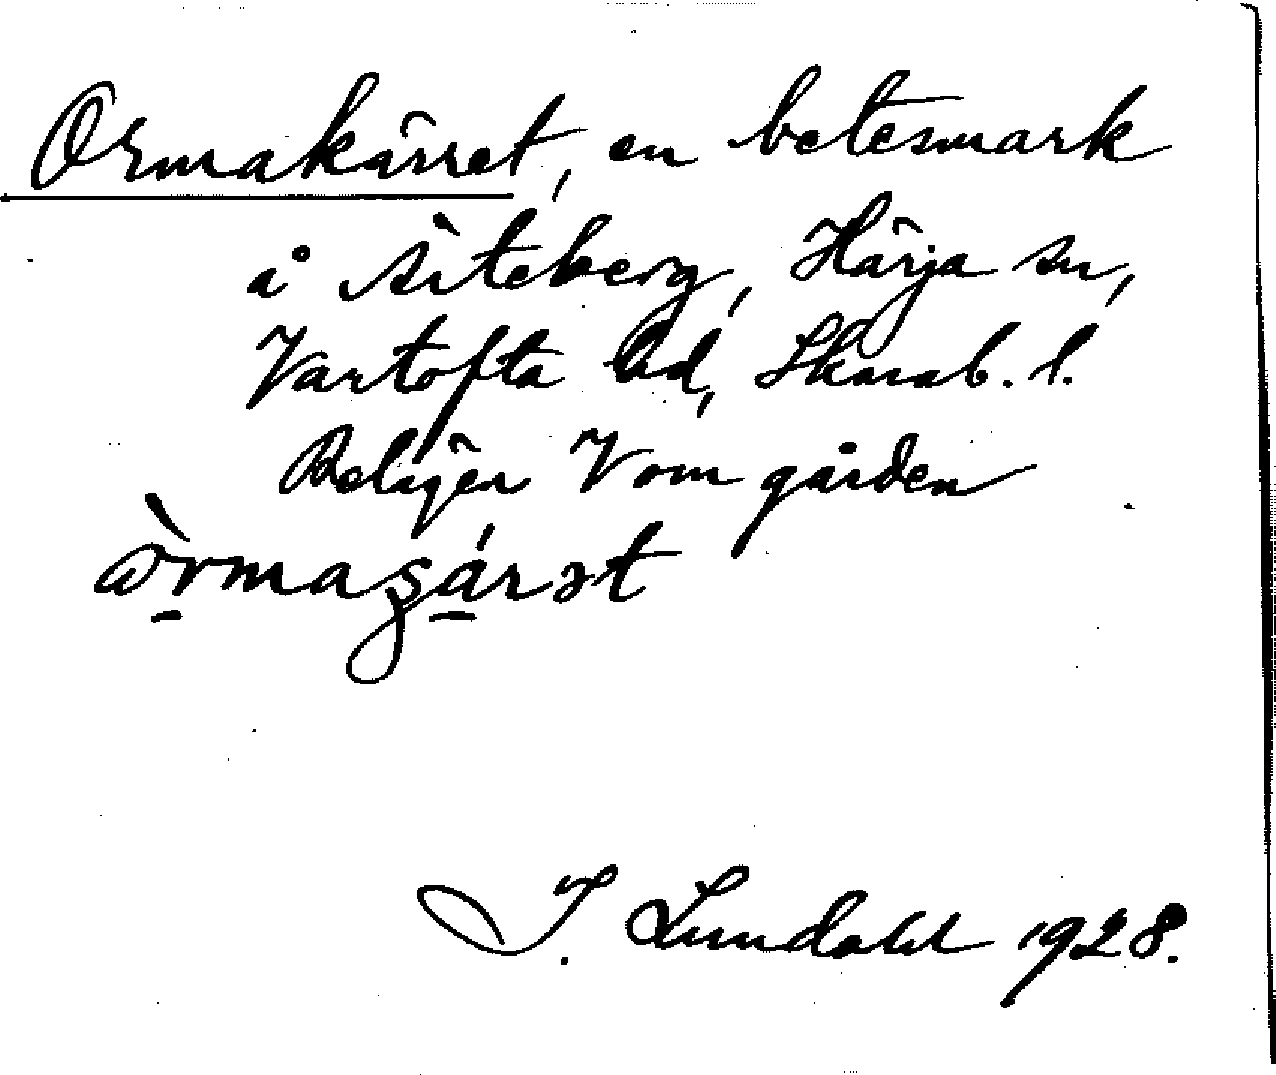 Ormakärret, en betesmark
å Siteberg, Härja sn,
Vartofta hd, Skarab. l.
Beläjen V om gården
I. Lundahl 1928.